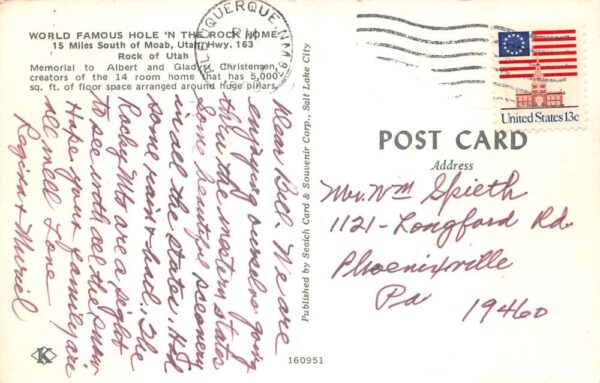 WORLD FAMOUS HOLE 'N THE ROCK HOME
15 Miles South of Moab, Utah Hwy. 163
Rock of Utah
Memorial to Albert and Gladys Christensen,
creators of the 14 room home that has 5,000
sq. ft. of floor space arranged around huge pillars.
ALBUQUERQUE, NM 87
PM
United States 13c
Dear Bill. We are
enjoying ourselves going
thru the western states
Some beautiful scenery
in all the states. Had
some rain & hail. The
Rocky Mts are a sight
to see with all the snow
Hope your family are
all well Love
Regis & Muriel
Published by Sealch Card & Souvenir Corp., Salt Lake City
POST CARD
Address
Mr. Wm Spieth
1121 - Longford Rd.
Phoenixville
Pa 19460
K
160951